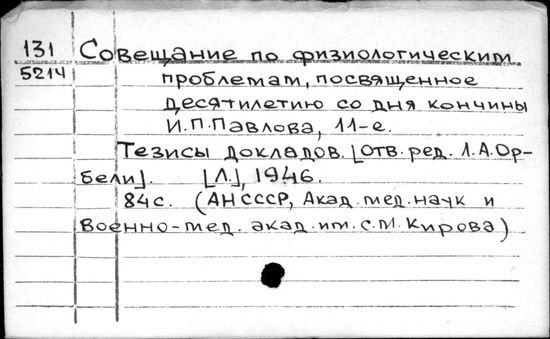 131 Совещание по физиологическим
5214 проблемам, посвященное
десятилетию со дня кончины
И.П.Павлова, 11-е.
Тезисы докладов. [Отв. ред. Л.А.Ор-
бели]. [Л.], 1946.
84с. (АН СССР, Акад. мед. наук и
Военно-мед. акад. им. С.М.Кирова)